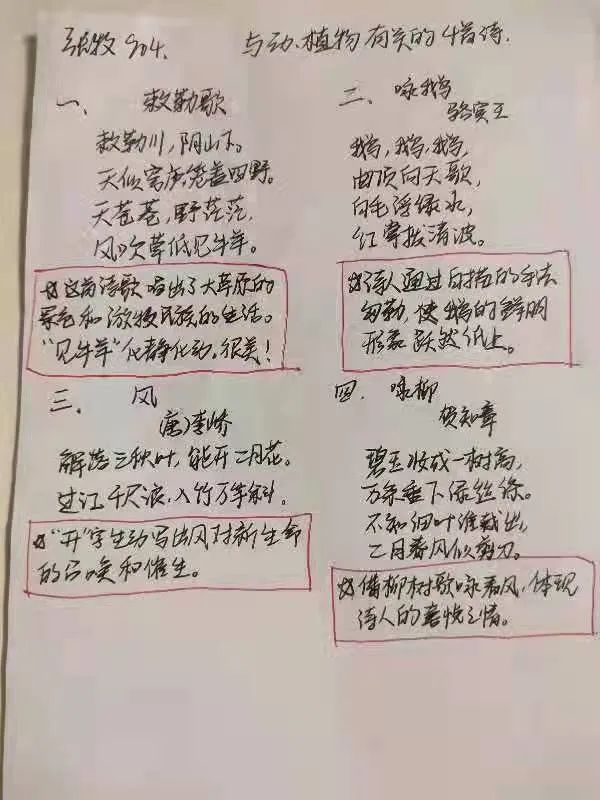 张牧 904. 与动、植物有关的4首诗.
一、 敕勒歌
敕勒川,阴山下。
天似穹庐,笼盖四野。
天苍苍,野茫茫,
风吹草低见牛羊。
☆这首诗歌唱出了大草原的
景色和游牧民族的生活。
“见牛羊”化静化动,很美!
二、咏鹅
骆宾王
鹅,鹅,鹅,
曲项向天歌,
白毛浮绿水,
红掌拨清波。
☆诗人通过白描的手法
勾勒,使鹅的鲜明
形象跃然纸上。
三、 风
唐)李峤
解落三秋叶,能开二月花。
过江千尺浪,入竹万竿斜。
☆“开”字生动写出风对新生命
的召唤和催生。
四. 咏柳
贺知章
碧玉妆成一树高,
万条垂下绿丝绦。
不知细叶谁裁出,
二月春风似剪刀。
☆借柳树歌咏春风,体现
诗人的喜悦之情。